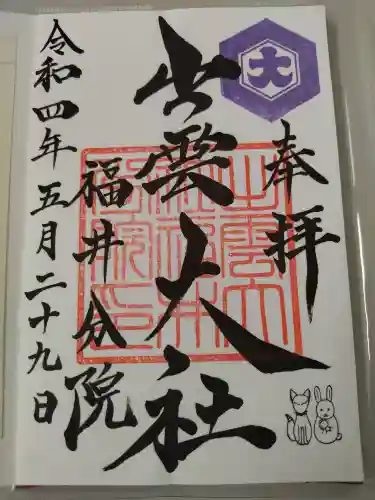 奉拝
大
出雲大社
福井分院
令和四年五月二十九日